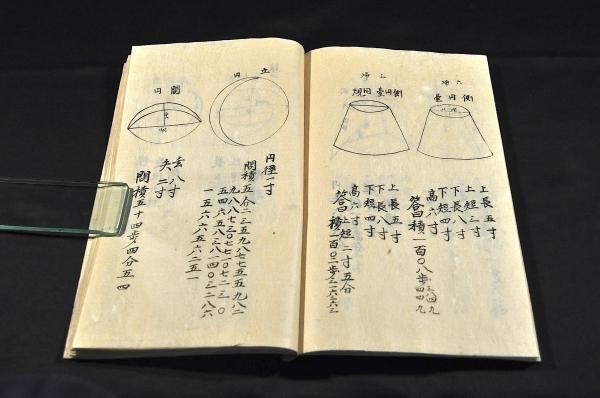 六
側円臺
上長五寸
上短三寸
下長八寸
下短四寸
高六寸
答曰積一百〇八歩三四九
側円臺
上長五寸
下長八寸
下短四寸
高六寸
答曰上短二寸五分
立円
円径一寸
問積五分二三五九八七七五五九八二
九八八七三〇七七一〇七二三〇
五四六五八三八一四〇三二八六
一五六六五六二五一
円闕
玄八寸
矢二寸
問積五十四歩四分五四